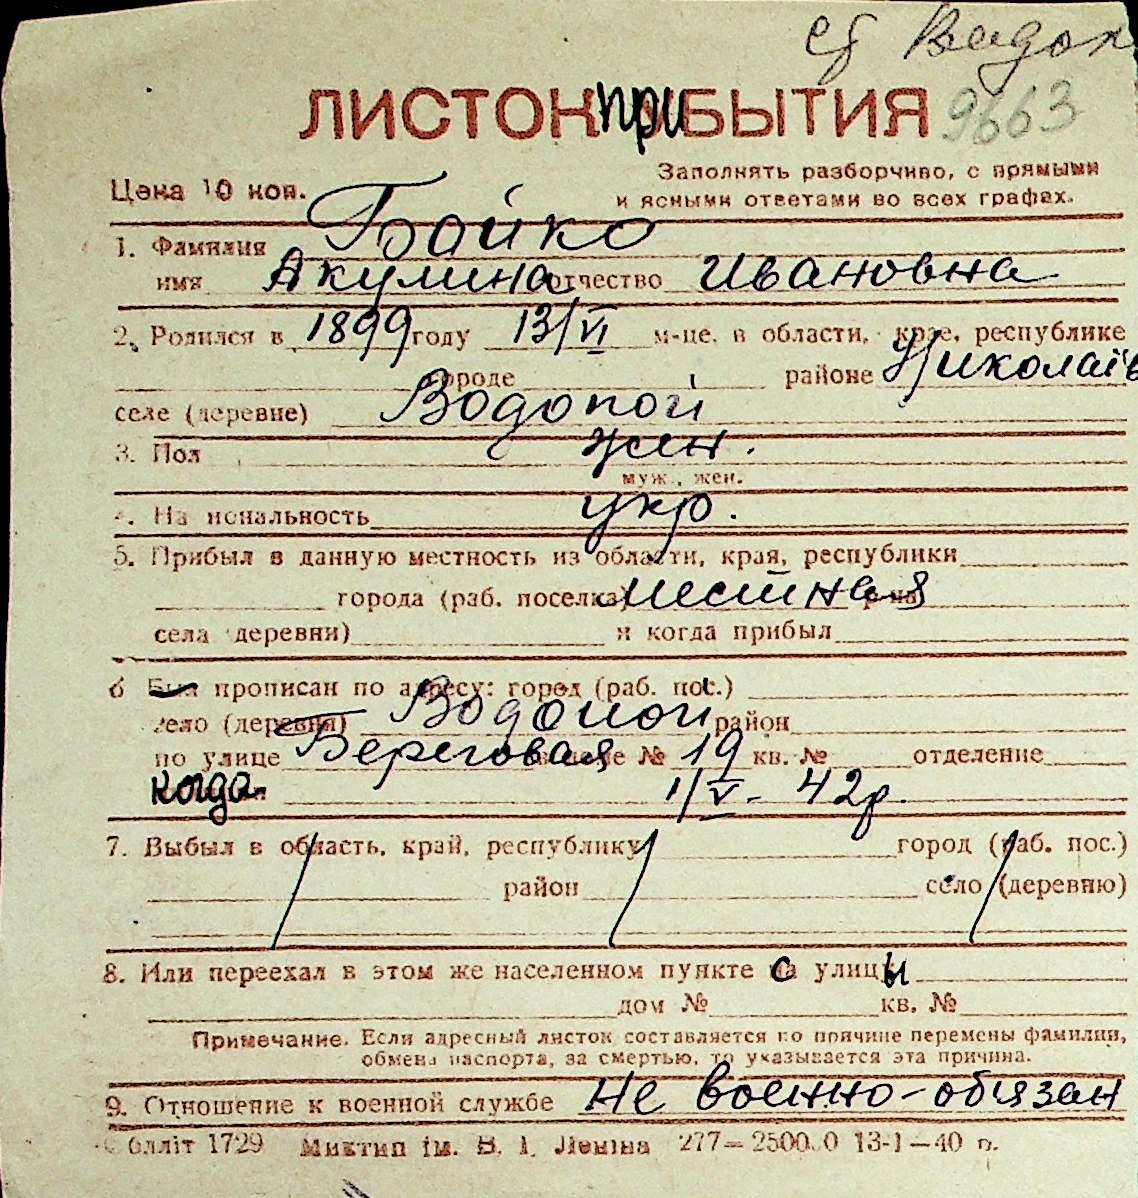 с/ Водоп
ЛИСТОК ПРИБЫТИЯ 9663
Цена 10 коп.
Заполнять разборчиво, с прямыми
и ясными ответами во всех графах.
1. Фамилия Бойко
имя Акулина отчество Ивановна
2. Родился в 1899 году 13/VI м-це, в области, крае, республике
городе районе Николаїв
селе (деревне) Водопой
3. Пол жен.
муж., жен.
4. Национальность укр.
5. Прибыл в данную местность из области, края, республики
города (раб. поселка) местная
села (деревни) и когда прибыл
6 Был прописан по адресу: город (раб. пос.)
село (деревня) Водопой район
по улице Береговая № 19 кв. № отделение
когда 1/V - 42 р.
7. Выбыл в область, край, республику город (раб. пос.)
район село (деревню)
8. Или переехал в этом же населенном пункте с улицы
дом № кв. №
Примечание. Если адресный листок составляется по причине перемены фамилии,
обмена паспорта, за смертью, то указывается эта причина.
9. Отношение к военной службе Не военно-обязан
Облліт 1729 Миктип ім. В. І. Леніна 277—2500.0 13-I—40 р.